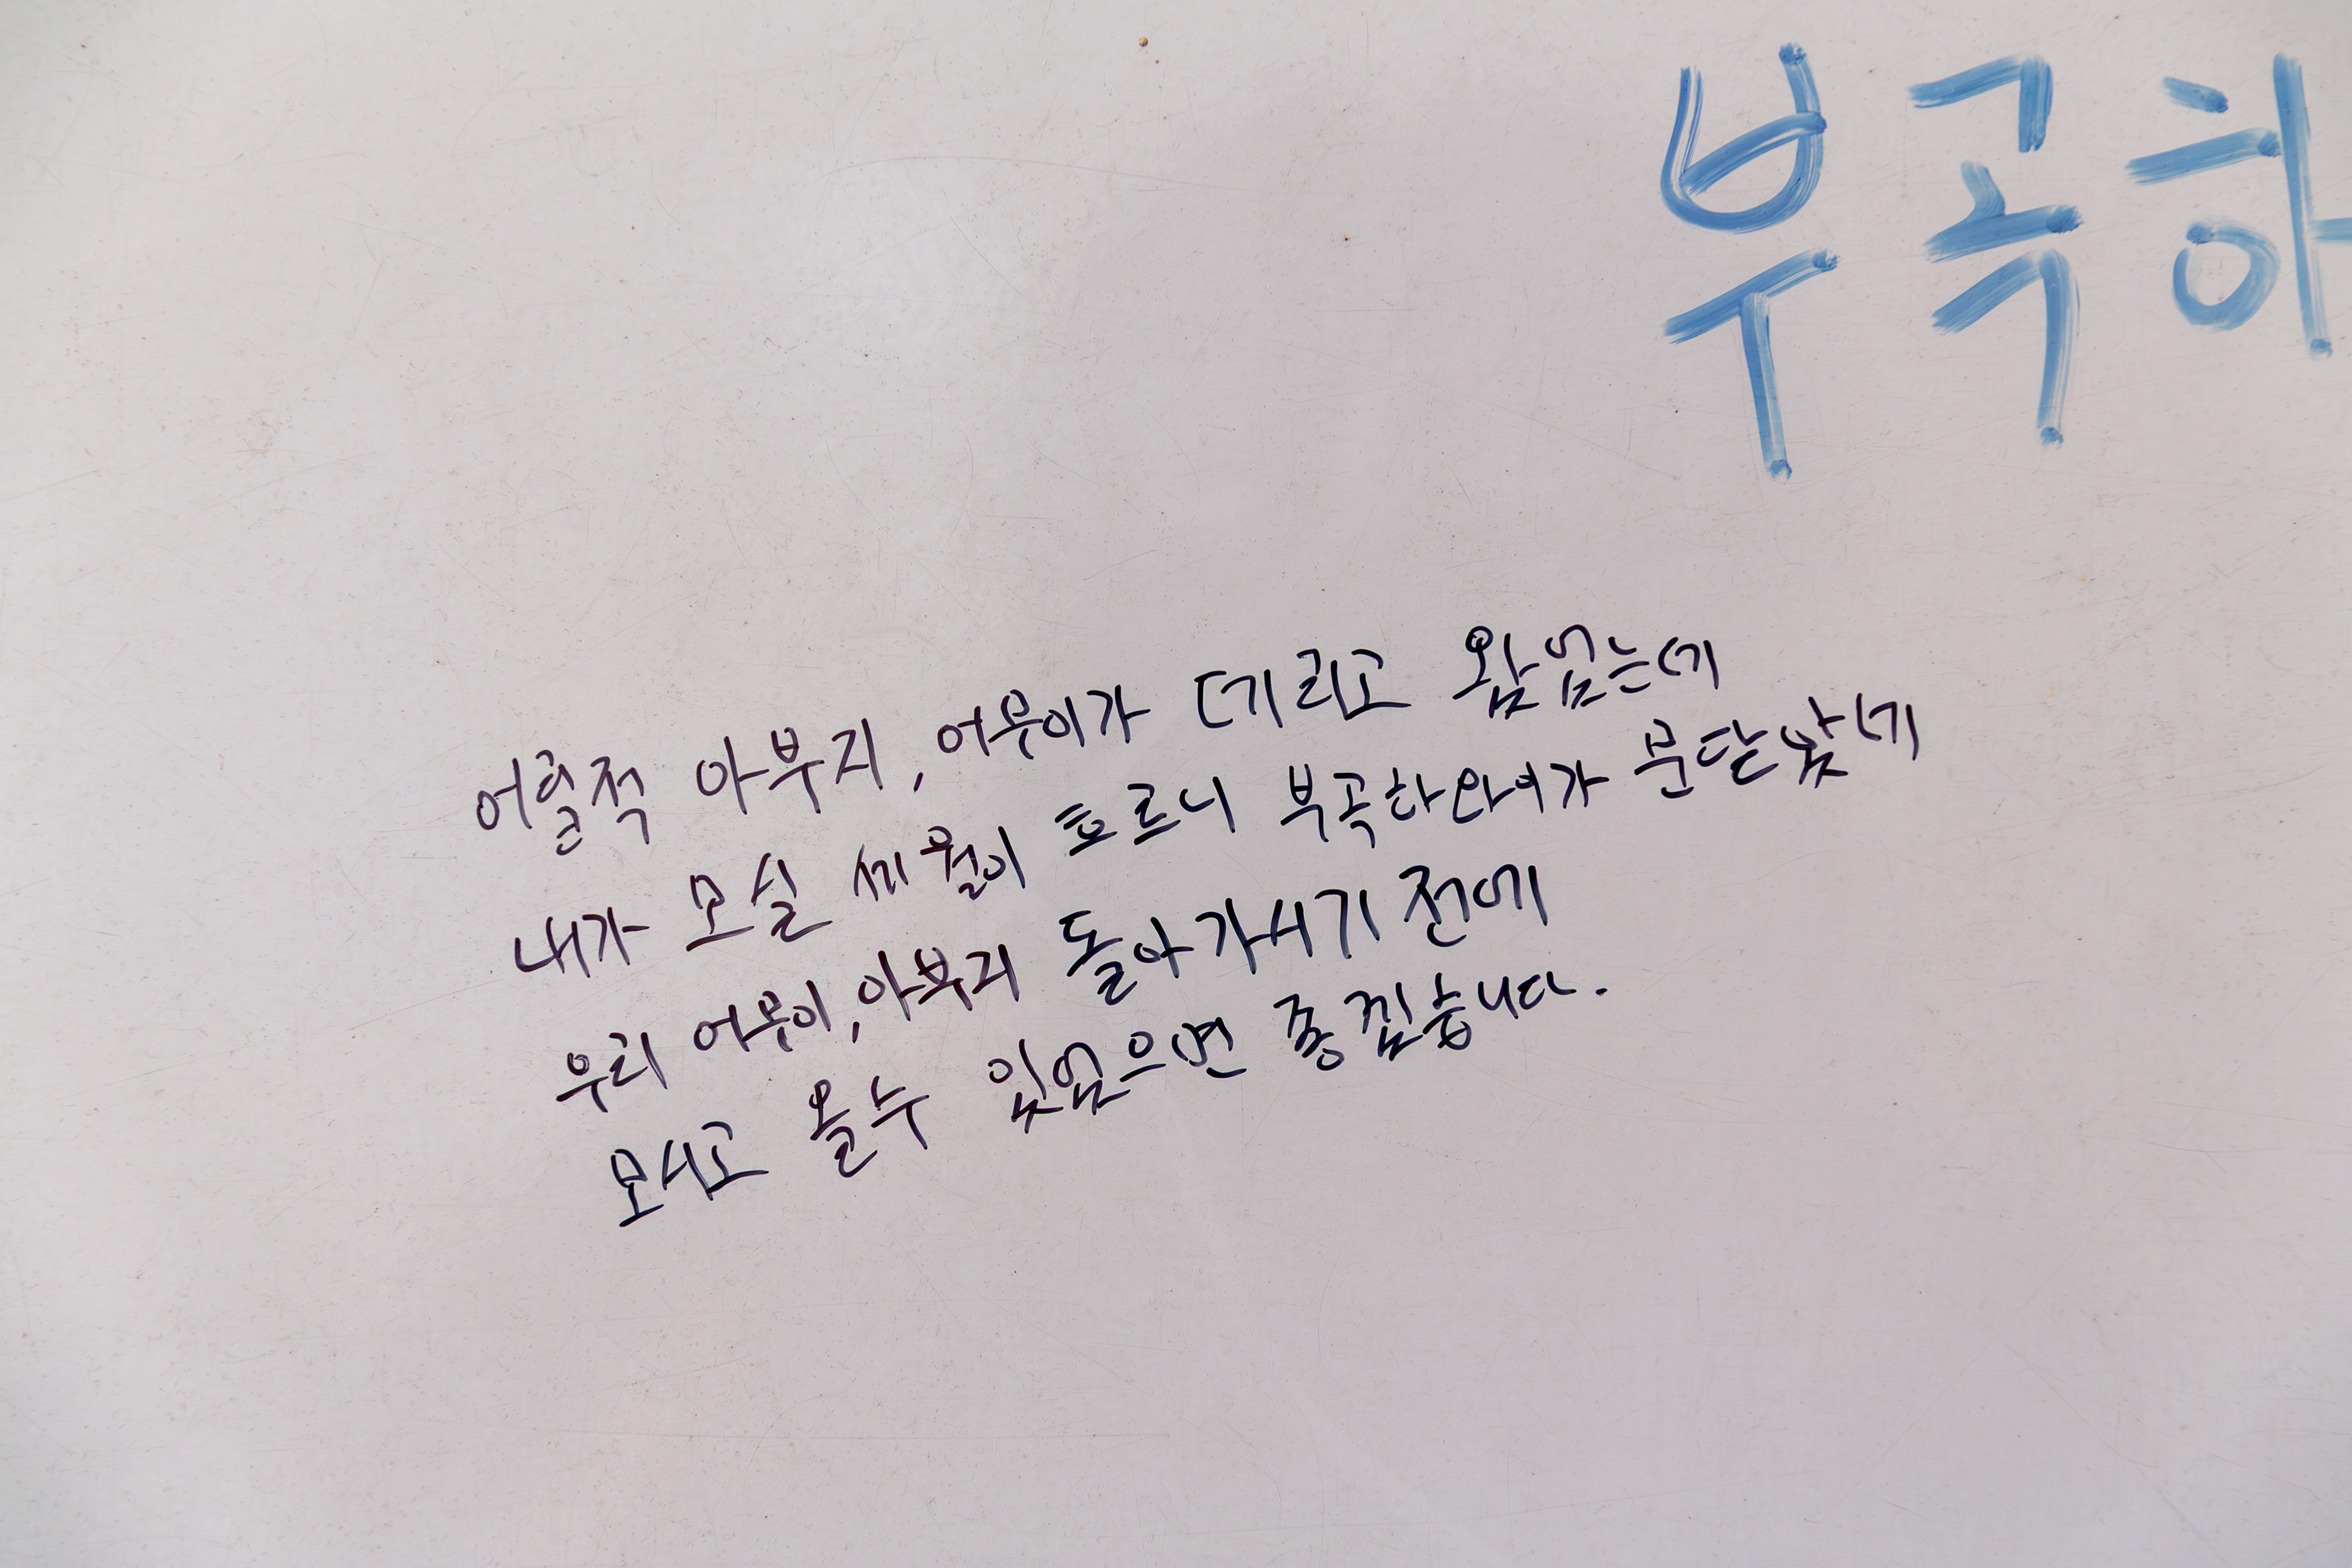 부곡하
어릴적 아부지, 어무이가 데리고 왔었는데
내가 모실 세월이 흐르니 부곡하와이가 문닫았네
우리 어무이, 아부지 돌아가시기 전에
모시고 올수 있었으면 좋겠습니다.